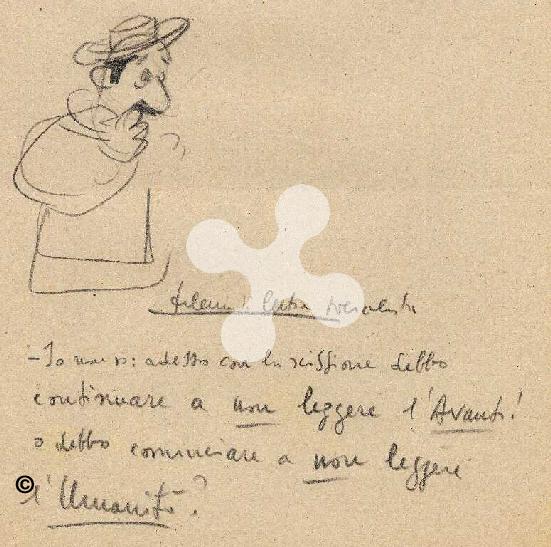 Dilemmi lettore socialista
- Io non so: adesso con la scissione debbo
continuare a non leggere l'Avanti!
o debbo cominciare a non leggere
l'Umanità?
©